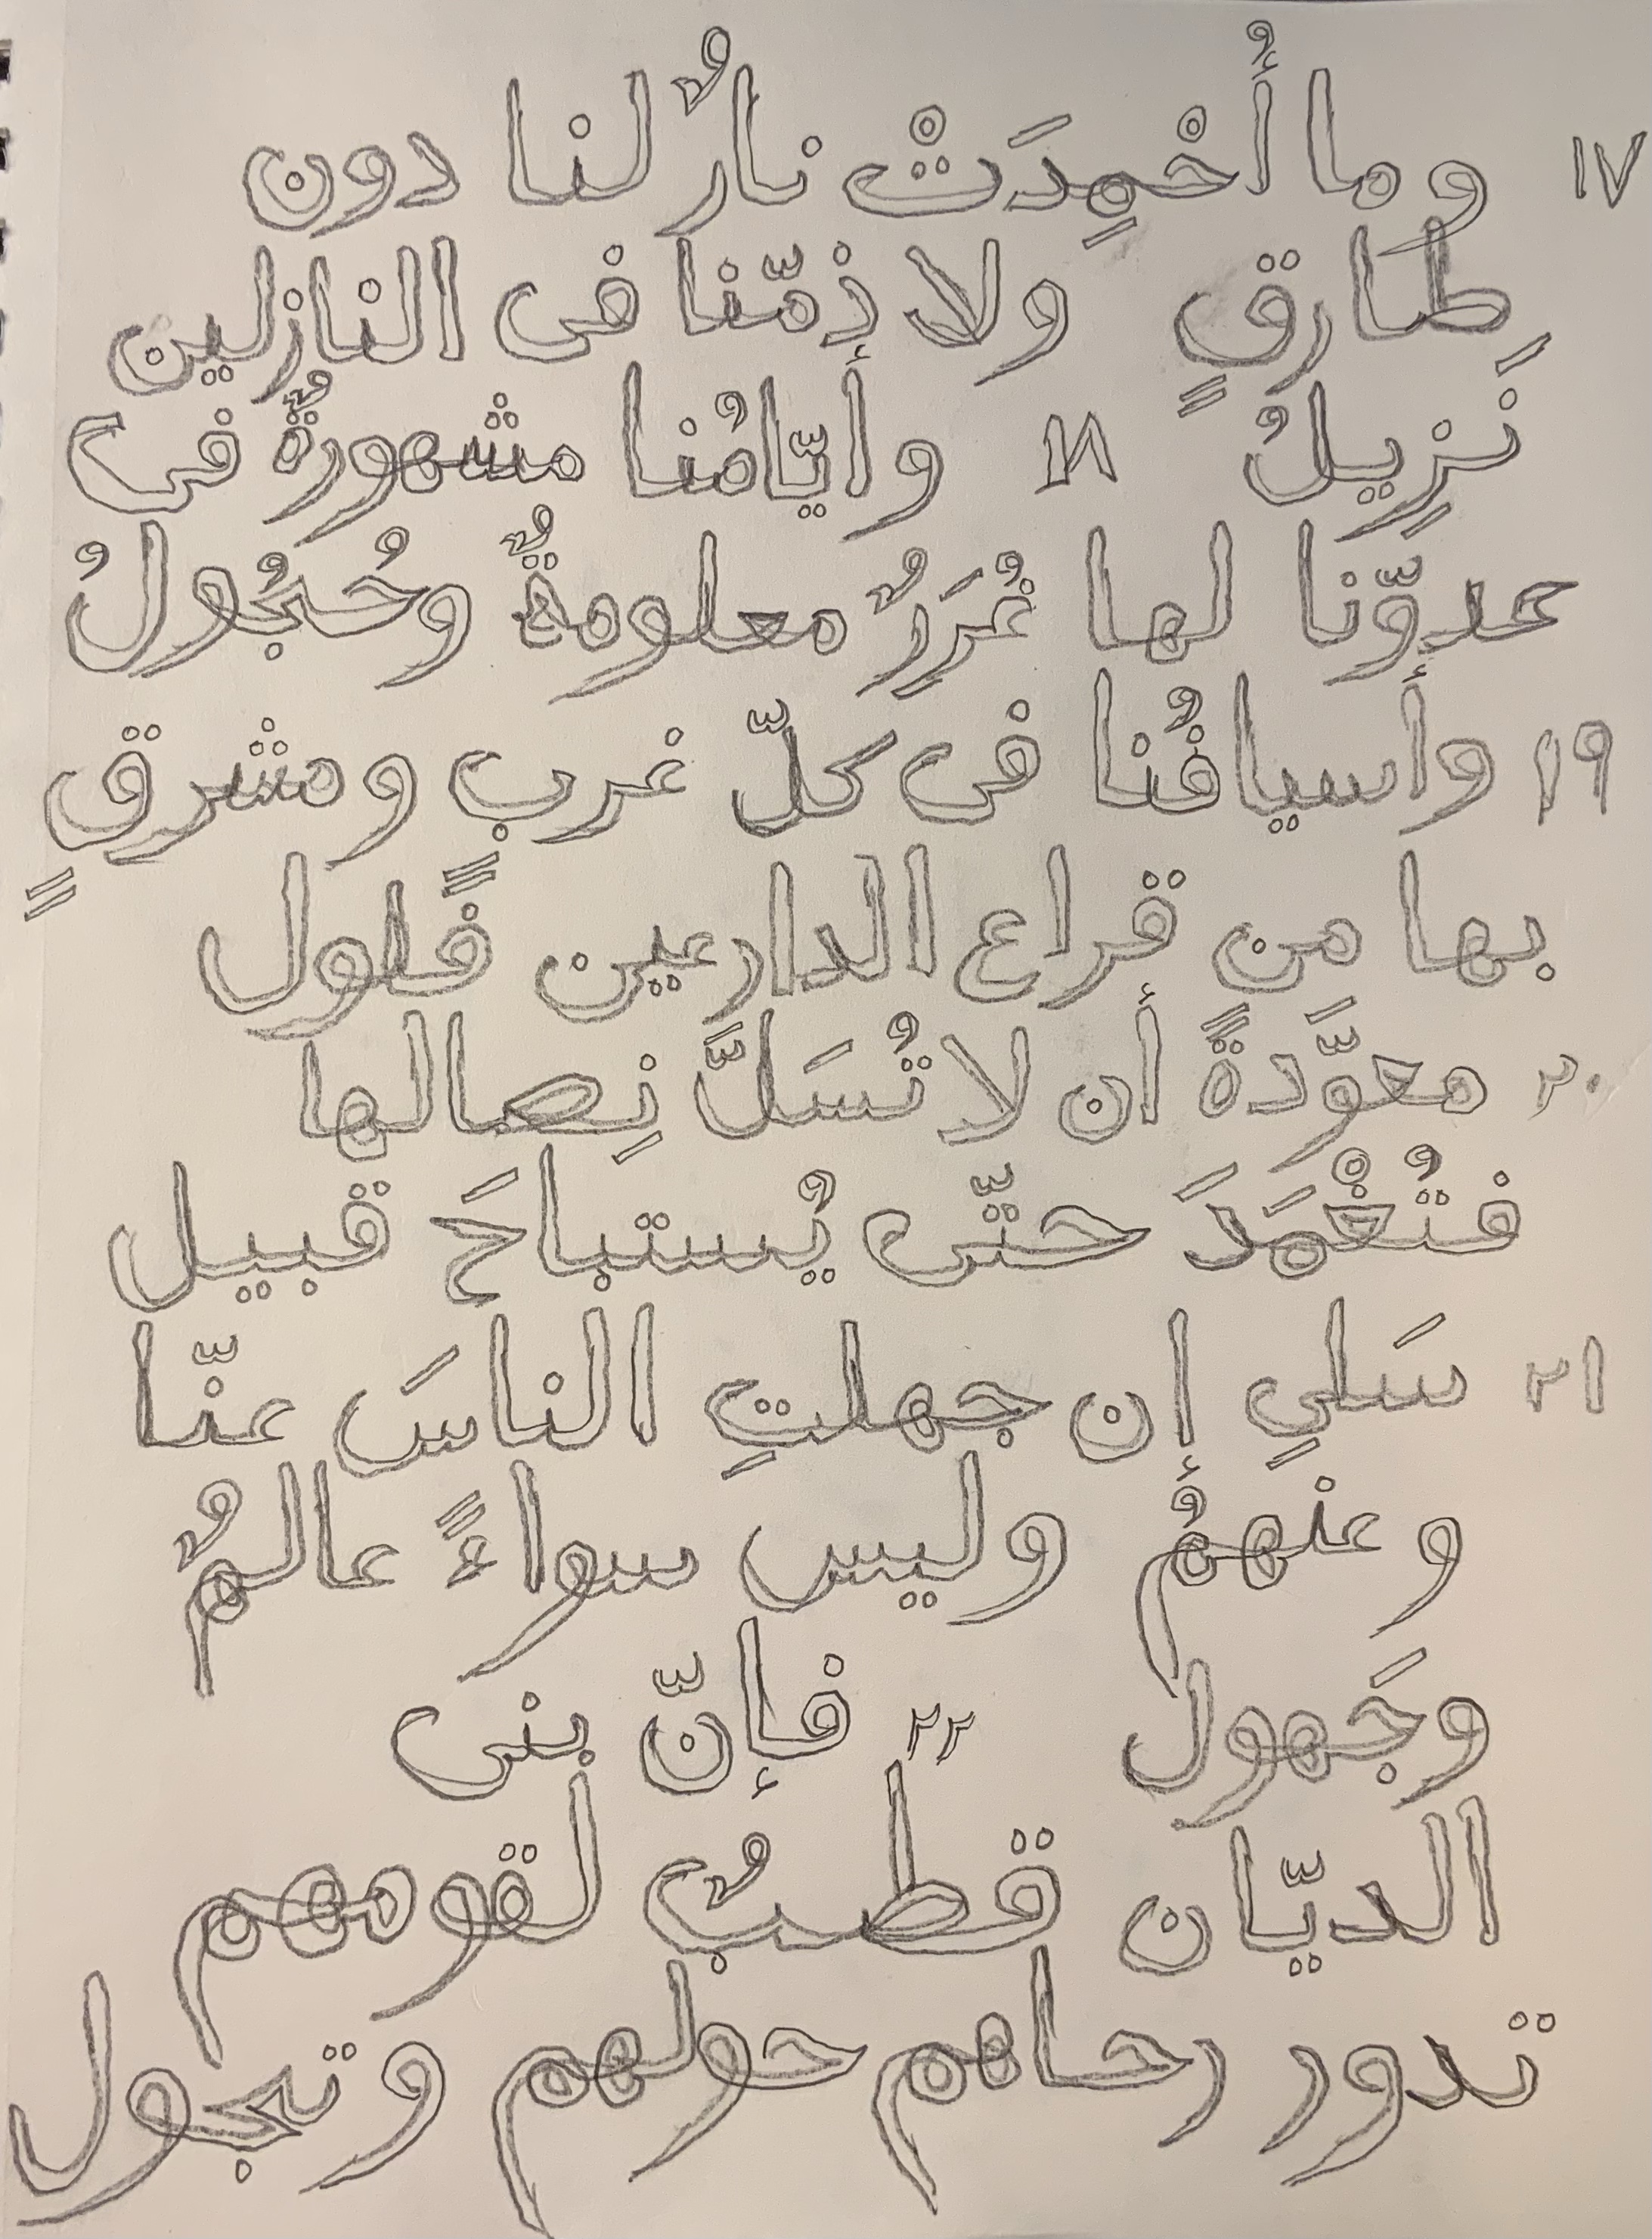 ١٧ وما أُخْمِدَتْ نارٌ لنا دون
طارقٍ ولا ذمّنا فى النازلين
نَزِيلُ ١٨ وأيّامُنا مشهورةٌ فى
عدوّنا لها غُرَرٌ معلومةٌ وحُجُولُ
١٩ وأسيافُنا فى كلّ غربٍ ومشرقٍ
بها من قراع الدارعين فلول
٢٠ معوَّدةً أن لا تُسَلَّ نِصالها
فتُغْمَدَ حتّى يُستباحَ قبيل
٢١ سَلي إن جهلتِ الناسَ عنّا
وعنهمُ وليس سواءً عالمٌ
وجَهول ٢٢ فإنّ بنى
الديّان قطبٌ لقومهم
تدور رحاهم حولهم وتجول